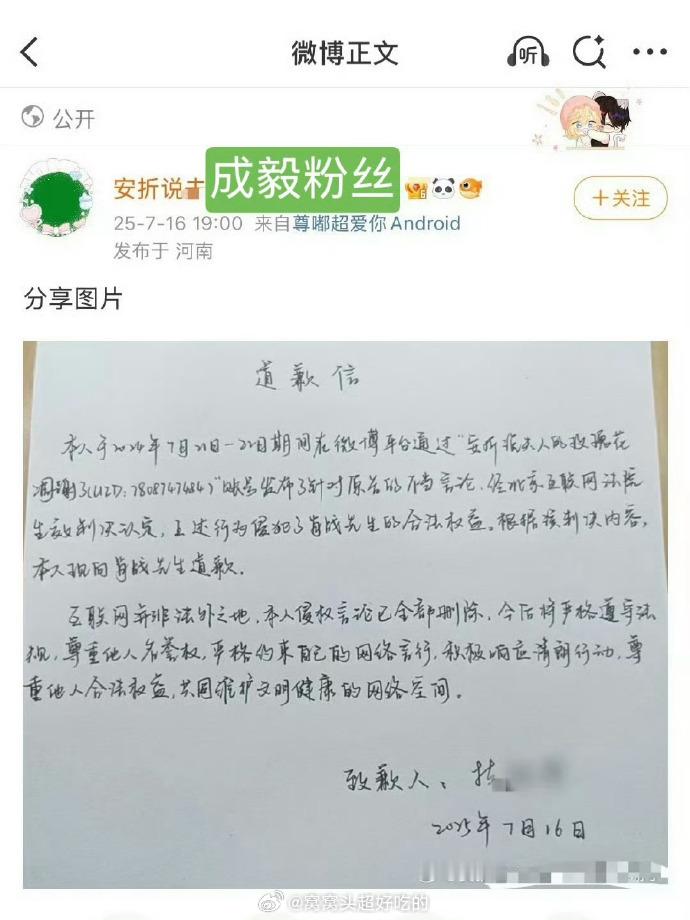 微博正文
听
公开
安折说
成毅粉丝
+关注
25-7-16 19:00 来自尊嘟超爱你Android
发布于 河南
分享图片
道歉信
本人于2024年7月21日-22日期间在微博平台通过"安折很夫人的玫瑰花
凋谢了(UID:7808747484)"账号发布了针对原告的不当言论,经北京互联网法院
生效判决认定,上述行为侵犯了肖战先生的合法权益。根据该判决内容,
本人现向肖战先生道歉。
互联网并非法外之地,本人侵权言论已全部删除,今后将严格遵守法
规,尊重他人名誉权,严格约束自己的网络言行,积极响应清朗行动,尊
重他人合法权益,共同维护文明健康的网络空间。
致歉人:
2025年7月16日
@窝窝头超好吃的